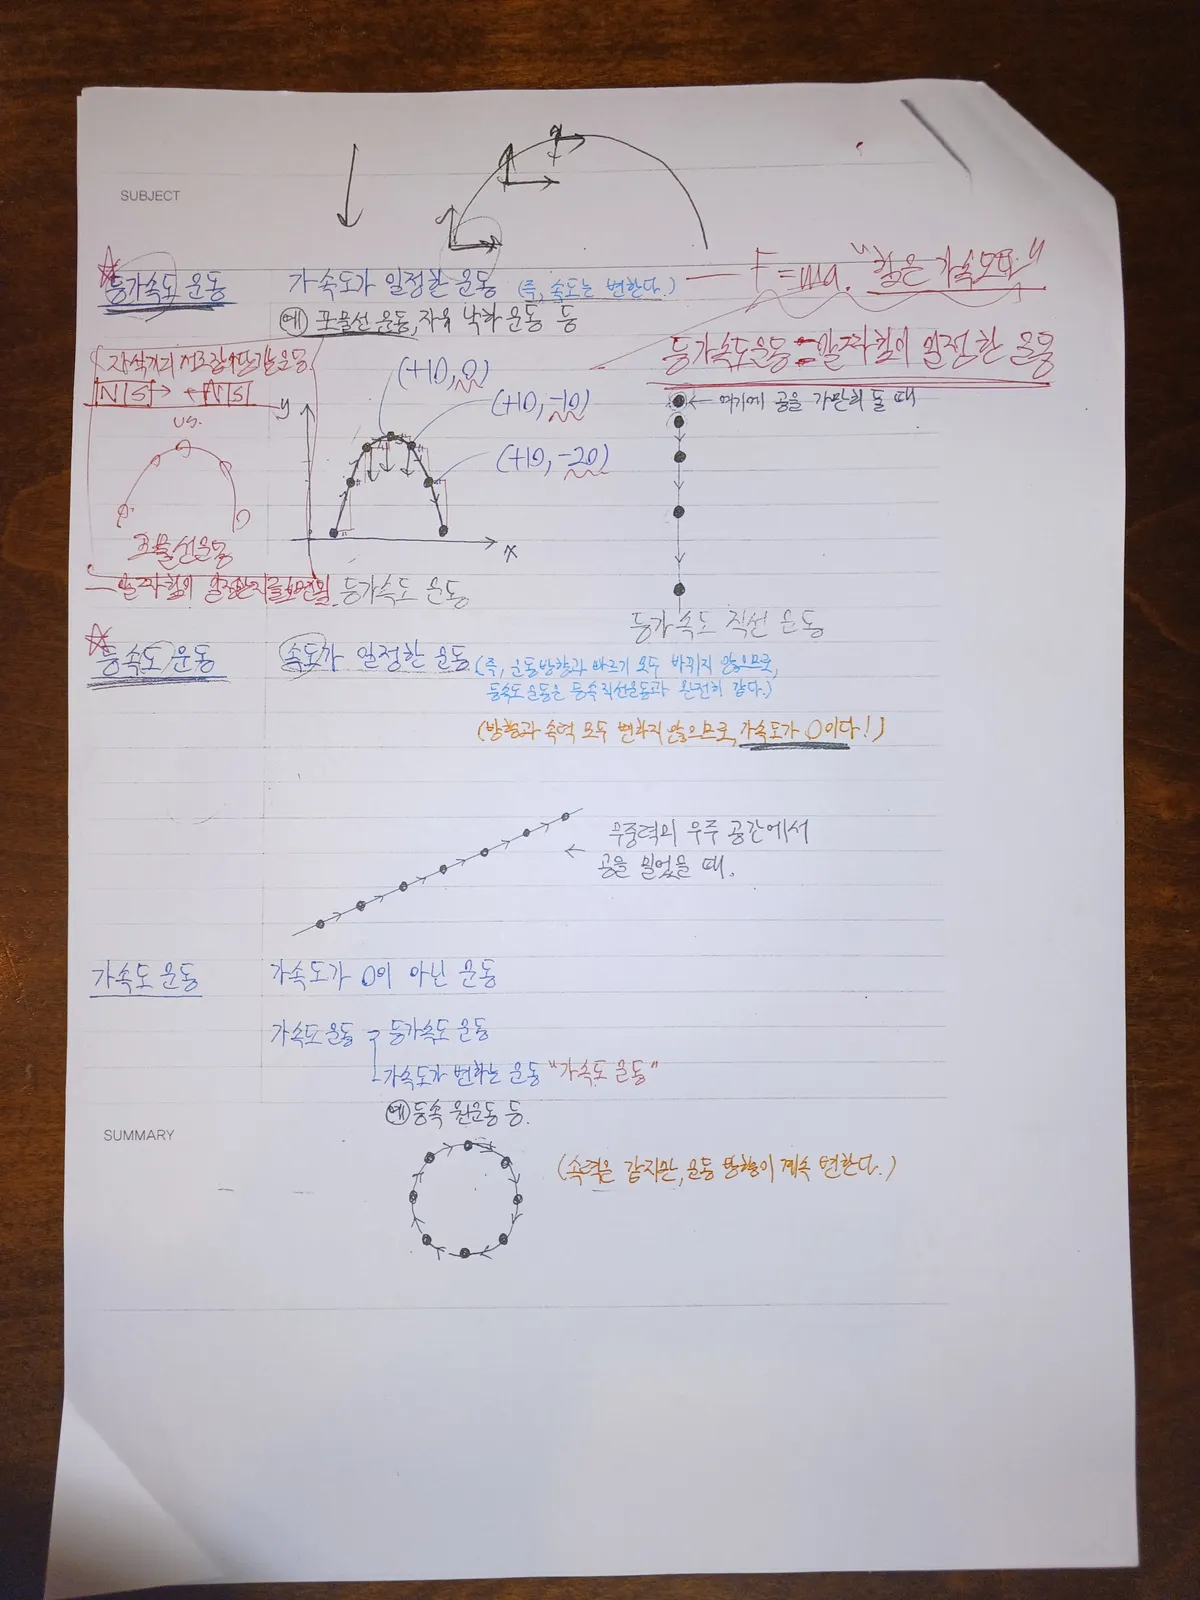 SUBJECT
등가속도 운동
가속도가 일정한 운동 (즉, 속도는 변한다.)
F=ma. "힘은 가속도다"
예) 포물선 운동, 자유 낙하 운동 등
등가속도운동=알짜힘이 일정한 운동
자석끼리
N S → ← N S
vs.
포물선운동
알짜힘이 일정한지를 보면 됨.
y
(+10, 0)
(+10, -10)
(+10, -20)
x
등가속도 운동
← 여기에 공을 가만히 둘 때
등가속도 직선 운동
등속도 운동
속도가 일정한 운동 (즉, 운동방향과 빠르기 모두 바뀌지 않으므로,
등속도 운동은 등속직선운동과 완전히 같다.)
(방향과 속력 모두 변하지 않으므로, 가속도가 0이다!)
← 무중력의 우주 공간에서
공을 밀었을 때.
가속도 운동
가속도가 0이 아닌 운동
가속도 운동 등가속도 운동
가속도가 변하는 운동 "가속도 운동"
예) 등속 원운동 등.
SUMMARY
(속력은 같지만, 운동 방향이 계속 변한다.)